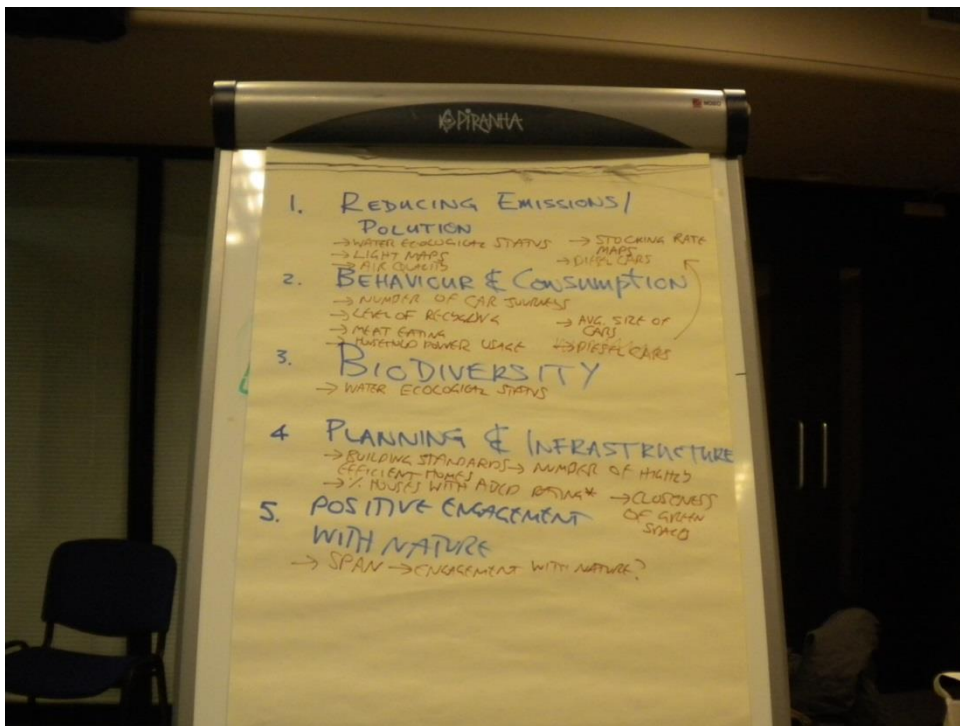 PIRANHA
NOBO
1. REDUCING EMISSIONS/
POLUTION
→ WATER ECOLOGICAL STATUS → STOCKING RATE
MAPS
→ LIGHT MAPS → DIESEL CARS
→ AIR QUALITY
2. BEHAVIOUR & CONSUMPTION
→ NUMBER OF CAR JOURNEYS
→ LEVEL OF RECYCLING → AVG. SIZE OF
CARS
→ MEAT EATING
→ HOUSEHOLD POWER USAGE → DIESEL CARS
3. BIODIVERSITY
→ WATER ECOLOGICAL STATUS
4 PLANNING & INFRASTRUCTURE
→ BUILDING STANDARDS → NUMBER OF HIGHLY
EFFICIENT HOMES
→ % HOUSES WITH RATING* → CLOSENESS
OF GREEN
SPACES
5. POSITIVE ENGAGEMENT
WITH NATURE
→ SPAN → ENGAGEMENT WITH NATURE?